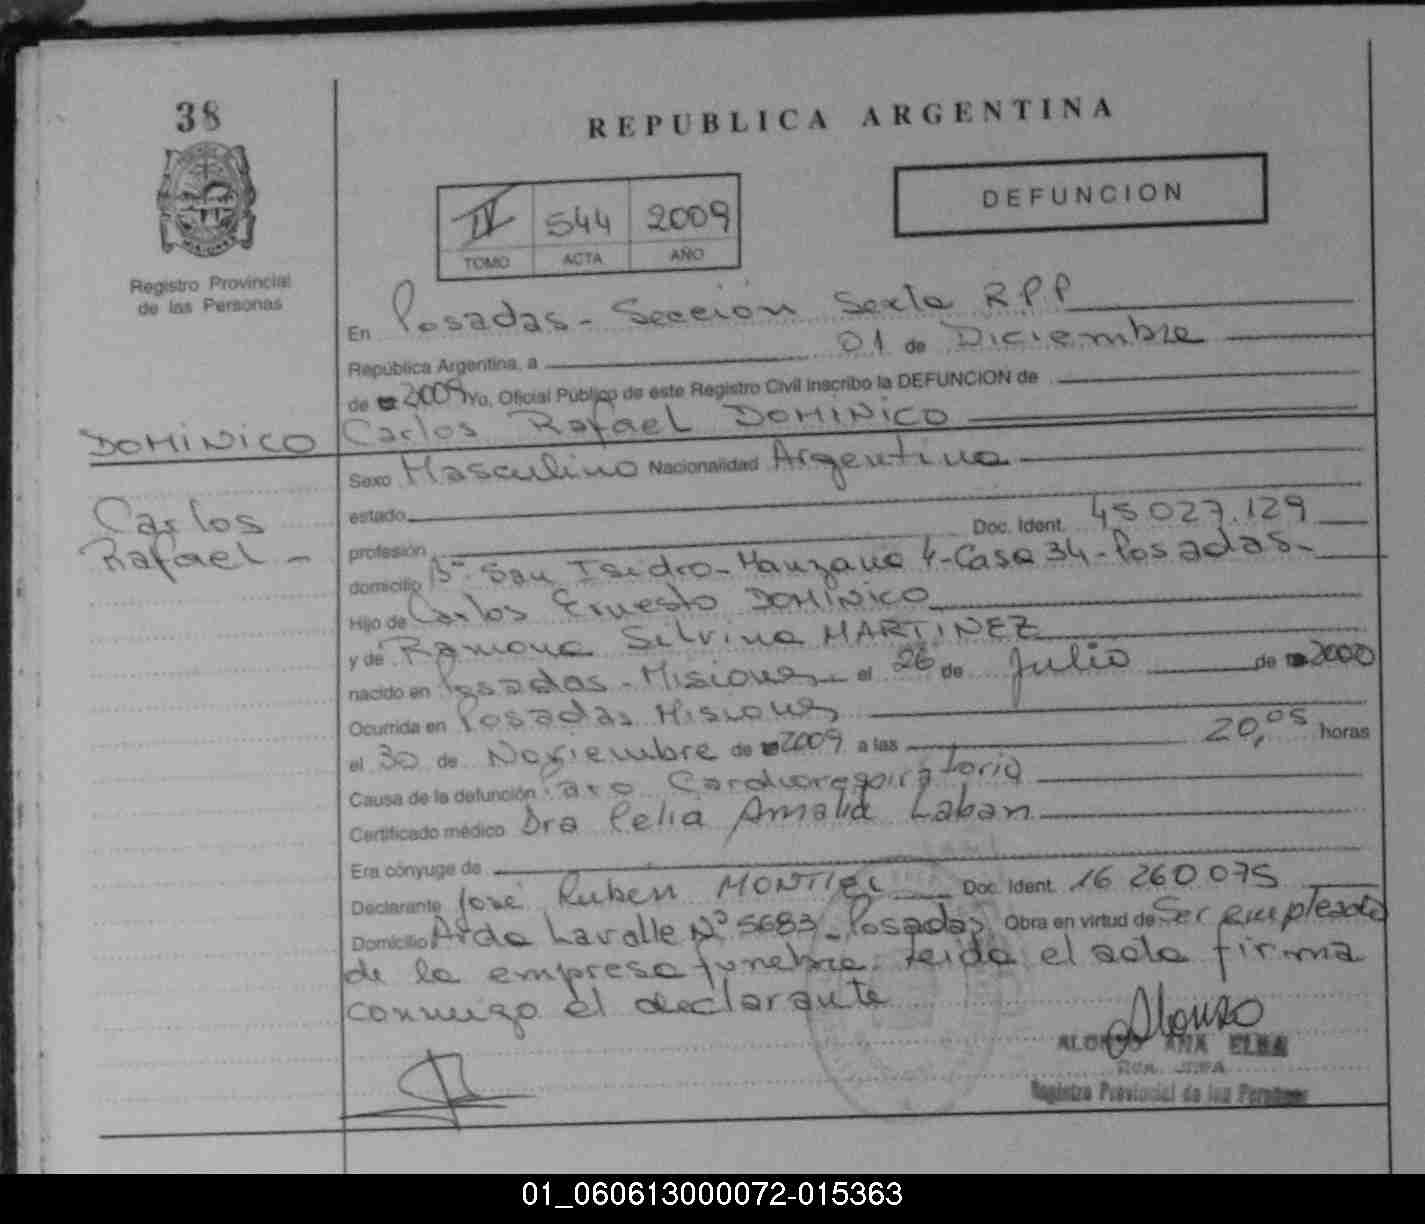 38
REPUBLICA ARGENTINA
DEFUNCION
IV 544 2009
TOMO ACTA AÑO
Registro Provincial
de las Personas
En Posadas - Sección Sexta R.P.P
República Argentina, a 01 de Diciembre
de 2009 Yo, Oficial Público de este Registro Civil inscribo la DEFUNCION de
DOMINICO Carlos Rafael DOMINICO
Sexo Masculino Nacionalidad Argentina
Carlos
Rafael -
estado
Doc. Ident. 45 027.129
profesión
domicilio Bº San Isidro - Manzana 4 - Casa 34 - Posadas -
Hijo de Carlos Ernesto DOMINICO
y de Ramona Silvina MARTINEZ
nacido en Posadas - Misiones - el 26 de Julio de 2000
Ocurrida en Posadas Misiones
el 30 de Noviembre de 2009 a las 20,05 horas
Causa de la defunción Cardiorespiratorio
Certificado médico Dra Celia Amalia Laban
Era cónyuge de
Declarante José Ruben MONTIEL Doc. Ident. 16 260 075
Domicilio Avda Lavalle Nº 5683 - Posadas Obra en virtud de Ser empleado
de la empresa funebre. Leida el acta firma
conmigo el declarante
Alonso
ALONSO ANA ELBA
Registro Provincial de las Personas
01_060613000072-015363